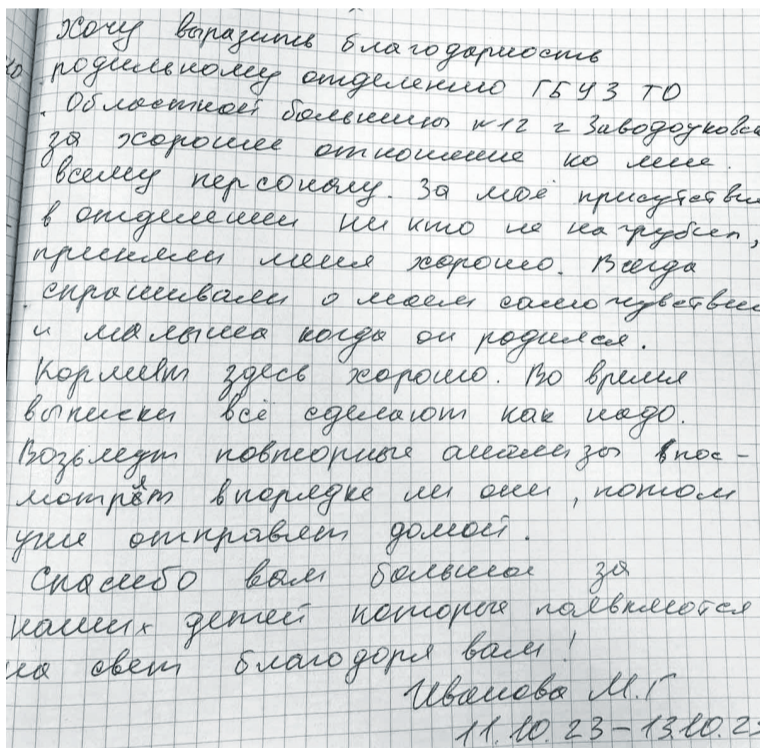 Хочу выразить благодарность
родильному отделению ГБУЗ ТО
Областной больницы №12 г Заводоуковск
за хорошее отношение ко мне.
всему персоналу. За моё присутствие
в отделении ни кто не нагрубил,
приняли меня хорошо. Всегда
спрашивали о моем самочувствии
и малыша когда он родился.
Кормят здесь хорошо. Во время
выписки всё сделают как надо.
Возьмут повторные анализы впос-
мотрят впорядке ли они, потом
уже отправят домой.
Спасибо вам большое за
наших детей которые появляются
на свет благодоря вам!
Иванова М.Г
11.10.23-13.10.23